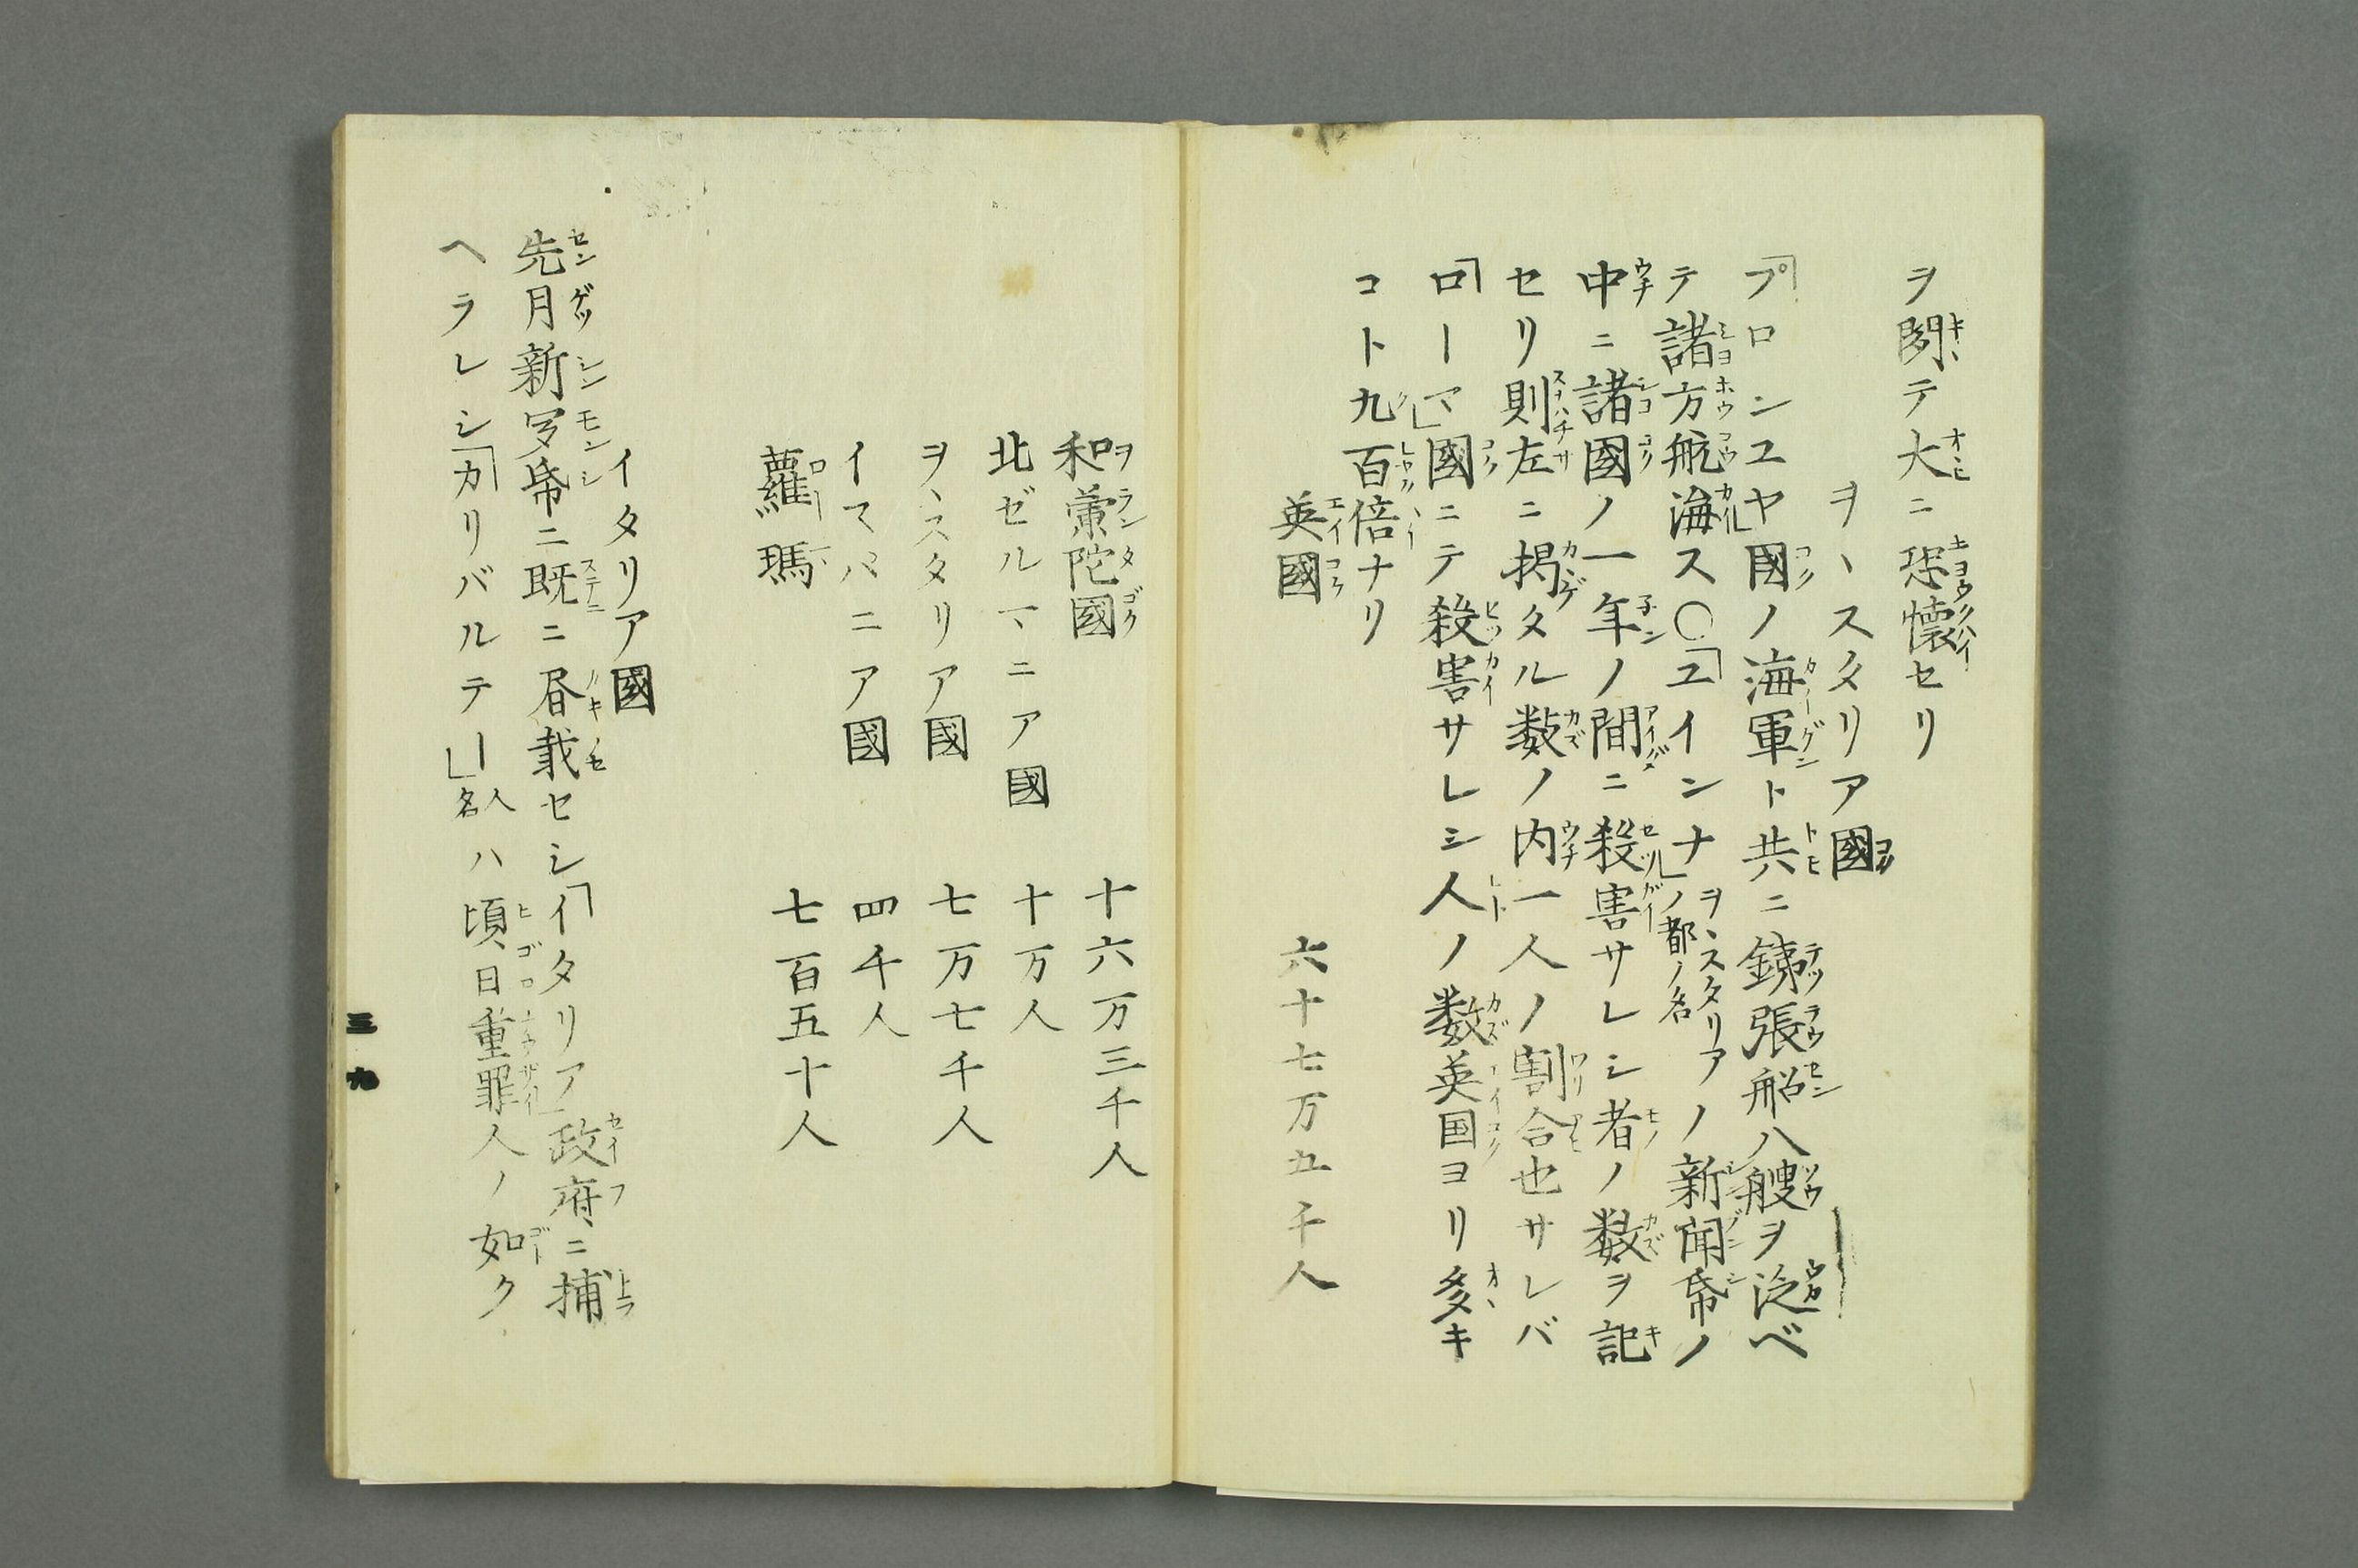 ヲ聞テ大ニ恐懐セリ
ヲヽスタリア國
「プロシユヤ」國ノ海軍ト共ニ銕張船八艘ヲ泛ベ
テ諸方航海ス〇「ユインナ」ヲヽスタリアノ都ノ名ノ新聞帋ノ
中ニ諸國ノ一年ノ間ニ殺害サレシ者ノ数ヲ記
セリ則左ニ掲タル数ノ内一人ノ割合也サレバ
「ローマ」國ニテ殺害サレシ人ノ数英国ヨリ多キ
コト九百倍ナリ
英國 六十七万五千人
和蘭陀國 十六万三千人
北ゼルマニア國 十万人
ヲヽスタリア國 七万七千人
イスパニア國 四千人
蘿瑪 七百五十人
イタリア國
先月新聞帋ニ既ニ昼載セシ「イタリア」政府ニ捕
ヘラレシ「カリバルテー」人名ハ頃日重罪人ノ如ク
三 九